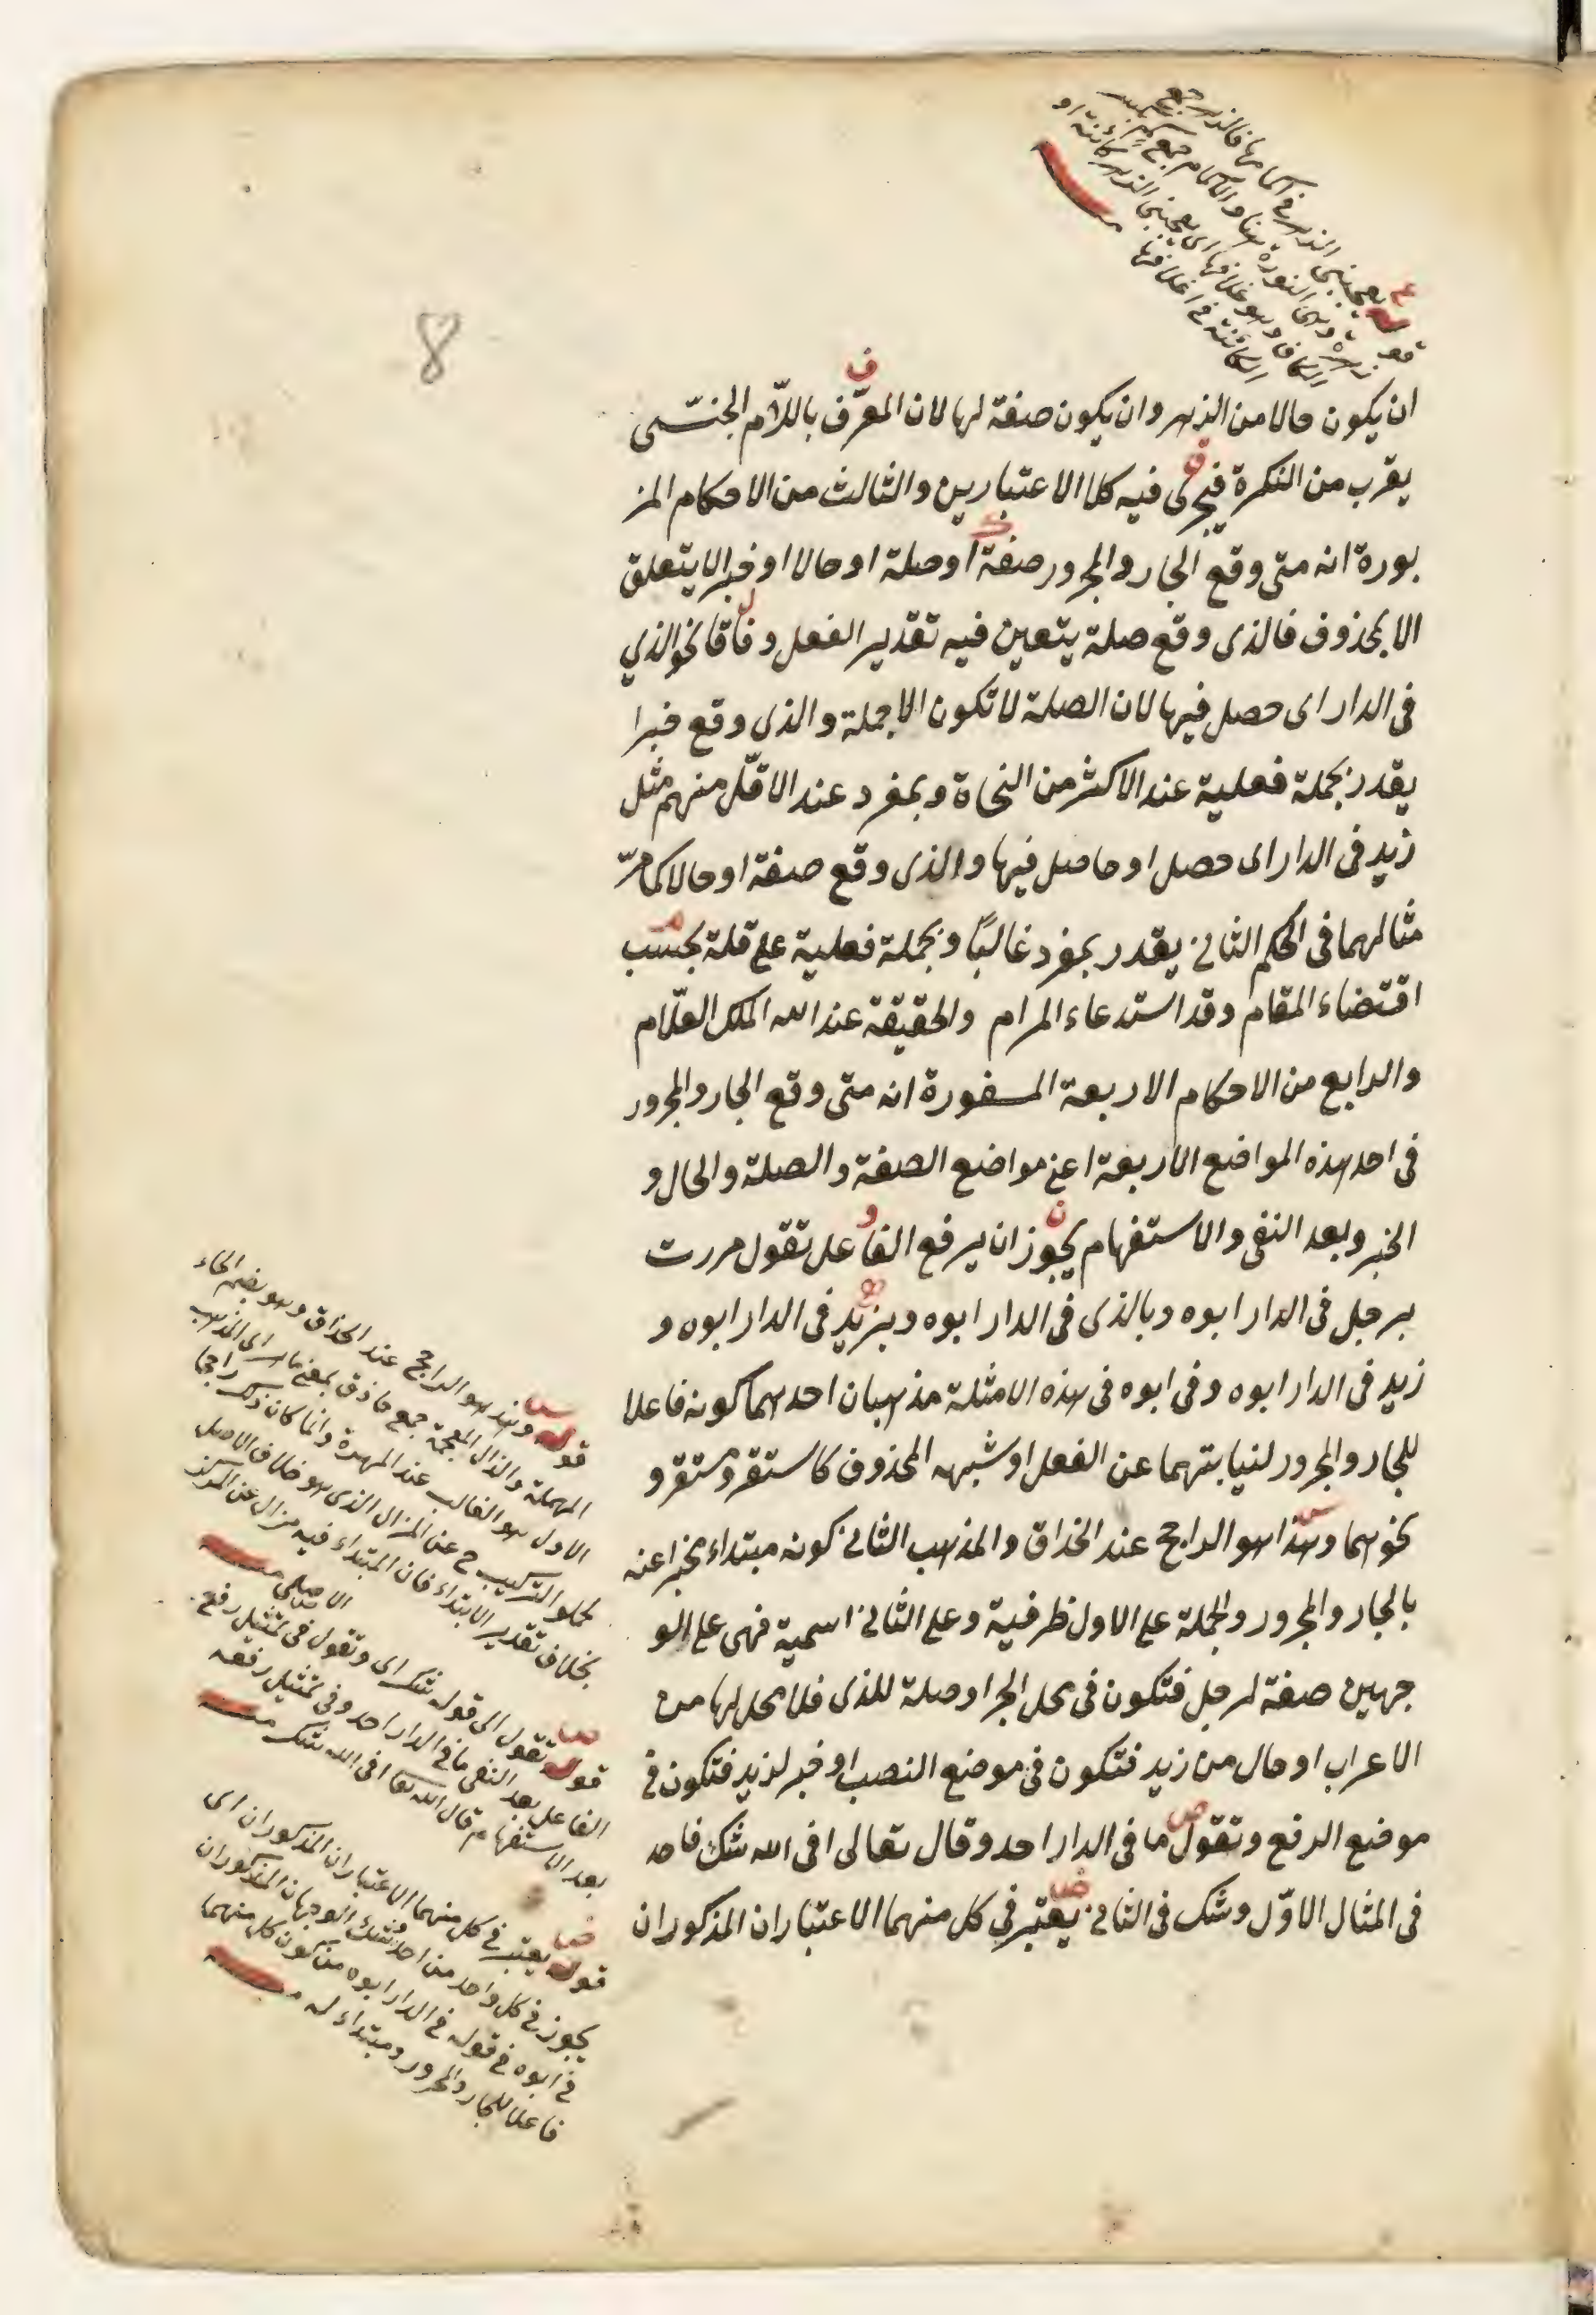 قوله يعجبنى الزهر فى اكمامها فالزهر جمع
زهرة وهى النورة هنا والاكمام جمع كم بكسر
الكاف وهو غلافها اى يعجبنى الزهر كائنة او
الكائنة فى اغلافها
8
ان يكون حالا من الزهر وان يكون صفة لها لان المعرّف باللام الجنسى
يقرب من النكرة فيجرى فيه كلا الاعتبارين والثالث من الاحكام المز
بورة انه متى وقع الجار والمجرور صفة او صلة او حالا او خبرا لا يتعلق
الا بمحذوف فالذى وقع صلة يتعين فيه تقدير الفعل وفاقا نحو الذي
فى الدار اى حصل فيها لان الصلة لا تكون الا جملة والذى وقع خبرا
يقدر بجملة فعلية عند الاكثر من النحاة وبمفرد عند الاقلّ منهم مثل
زيد فى الدار اى حصل او حاصل فيها والذى وقع صفة او حالا كما مرّ
مثالهما فى الحكم الثانى يقدر بمفرد غالبًا وبجملة فعلية على قلة بحسب
اقتضاء المقام وقد استدعاء المرام والحقيقة عند الله الملك العلّام
والرابع من الاحكام الاربعة المسفورة انه متى وقع الجار والمجرور
فى احد هذه المواضع الاربعة اعنى مواضع الصفة والصلة والحال و
الخبر وبعد النفى والاستفهام يجوز ان يرفع الفاعل تقول مررت
برجل فى الدار ابوه وبالذى فى الدار ابوه وبزيد فى الدار ابوه و
زيد فى الدار ابوه وفى ابوه فى هذه الامثلة مذهبان احدهما كونه فاعلا
للجار والمجرور لنيابتهما عن الفعل او شبهه المحذوف كاستقر ومستقر و
نحوهما وهذا هو الراجح عند الحذاق والمذهب الثانى كونه مبتداء مخبرا عنه
بالجار والمجرور والجملة على الاول ظرفية وعلى الثانى اسمية فهى على الو
جهين صفة لرجل فتكون فى محل الجر او صلة للذى فلا محل لها من
الاعراب او حال من زيد فتكون فى موضع النصب او خبر لزيد فتكون فى
موضع الرفع وتقول ما فى الدار احد وقال تعالى افى الله شك فاحد
فى المثال الاوّل وشك فى الثانى يعتبر فى كل منهما الاعتباران المذكوران
قوله وهذا هو الراجح عند الحذاق وهو بضم الحاء
المهملة والذال المعجمة جمع حاذق بمعنى ماهر اى المذهب
الاول هو الغالب عند المهرة وانما كان ذلك راجحا
لخلو التركيب ح عن المزال الذى هو خلاف الاصل
بخلاف تقدير الابتداء فان المبتداء فيه مزال عن المركز
الاصلى
قوله وتقول الى قوله شك اى وتقول فى تمثيل رفع
الفاعل بعد النفى ما فى الدار احد وفى تمثيل رفعه
بعد الاستفهام قال الله تعا افى الله شك
قوله يعتبر فى كل منهما الاعتباران المذكوران اى
يجوز فى كل واحد من احد وشك الوجهان المذكوران
فى ابوه فى قوله فى الدار ابوه من كون كل منهما
فاعلا للجار والمجرور ومبتداء له